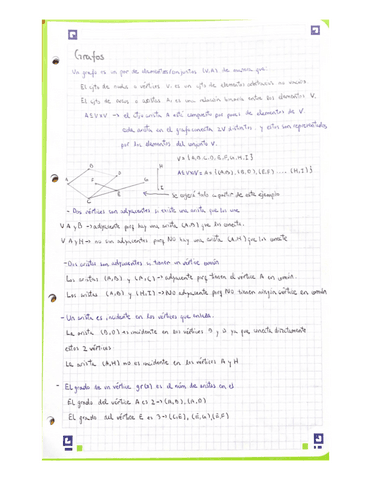 Grafos
Un grafo es un par de elementos/conjuntos (V,A) de manera que:
El cjto de nodos o vértices V, es un cjto de elementos arbitrario no vacío
El cjto de arcos o aristas A, es una relación binaria entre los elementos V.
A ⊆ V x V → el cjto arista A está compuesto por pares de elementos de V.
cada arista en el grafo conecta 2V distintos y estos son representados
por los elementos del conjunto V.
V = {A, B, C, D, E, F, G, H, I}
A ⊆ V x V = A = {(A,B), (B,D), (E,F) ..... (H,I)}
Se seguirá todo a partir de este ejemplo
- Dos vértices son adyacentes si existe una arista que los une
V A y B → adyacente porq hay una arista (A,B) que los conecte.
V A y H → no son adyacentes porq NO hay una arista (A,H) que los conecte
- Dos aristas son adyacentes si tienen un vértice común
Las aristas (A,B) y (A,C) → adyacente porq tienen el vértice A en común.
Las aristas (A,B) y (H,I) → NO adyacente porq NO tienen ningún vértice en común
- Una arista es incidente en los vértices que enlaza.
La arista (B,D) es incidente en los vértices B y D ya que conecta directamente
estos 2 vértices
La arista (A,H) no es incidente en los vértices A y H
- El grado de un vértice gr(v) es el núm de aristas en el
El grado del vértice A es 2 → (A,B), (A,D)
El grado del vértice E es 3 → (C,E), (E,G), (E,F)